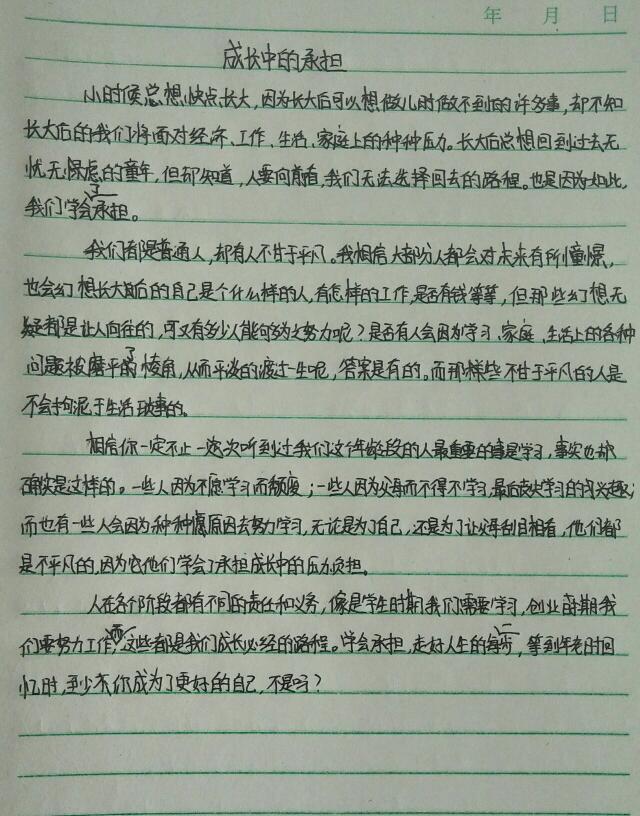 年 月 日
成长中的承担
小时候总想快点长大，因为长大后可以想做儿时做不到的许多事，却不知
长大后的我们将面对经济、工作、生活、家庭上的种种压力。长大后总想回到过去无
忧无虑的童年，但却知道，人要向前看，我们无法选择回去的路程。也是因为如此，
我们学会了承担。
我们都是普通人，却有人不甘于平凡。我相信大部分人都会对未来有所憧憬，
也会幻想长大以后的自己是个什么样的人，有怎样的工作，是否有钱等等，但那些幻想无
疑都是让人向往的，可又有多少人能够为之努力呢？是否有人会因为学习、家庭、生活上的各种
问题被磨平了棱角，从而平淡的渡过一生呢，答案是有的。而那些不甘于平凡的人是
不会拘泥于生活琐事的。
相信你一定不止一次听到过我们这个年龄段的人最重要的事是学习，事实也却
确实是这样的。一些人因为不愿学习而颓废；一些人因为父母而不得不学习，最后丧失学习的兴趣；
而也有一些人会因为种种原因去努力学习，无论是为了自己，还是为了让父母刮目相看，他们都
是不平凡的，因为他们学会了承担成长中的压力负担。
人在各个阶段都有不同的责任和义务，像是学生时期我们需要学习，创业时期我
们要努力工作，而这些都是我们成长必经的路程。学会承担，走好人生的每一步，等到年老时回
忆时，至少你成为了更好的自己，不是吗？